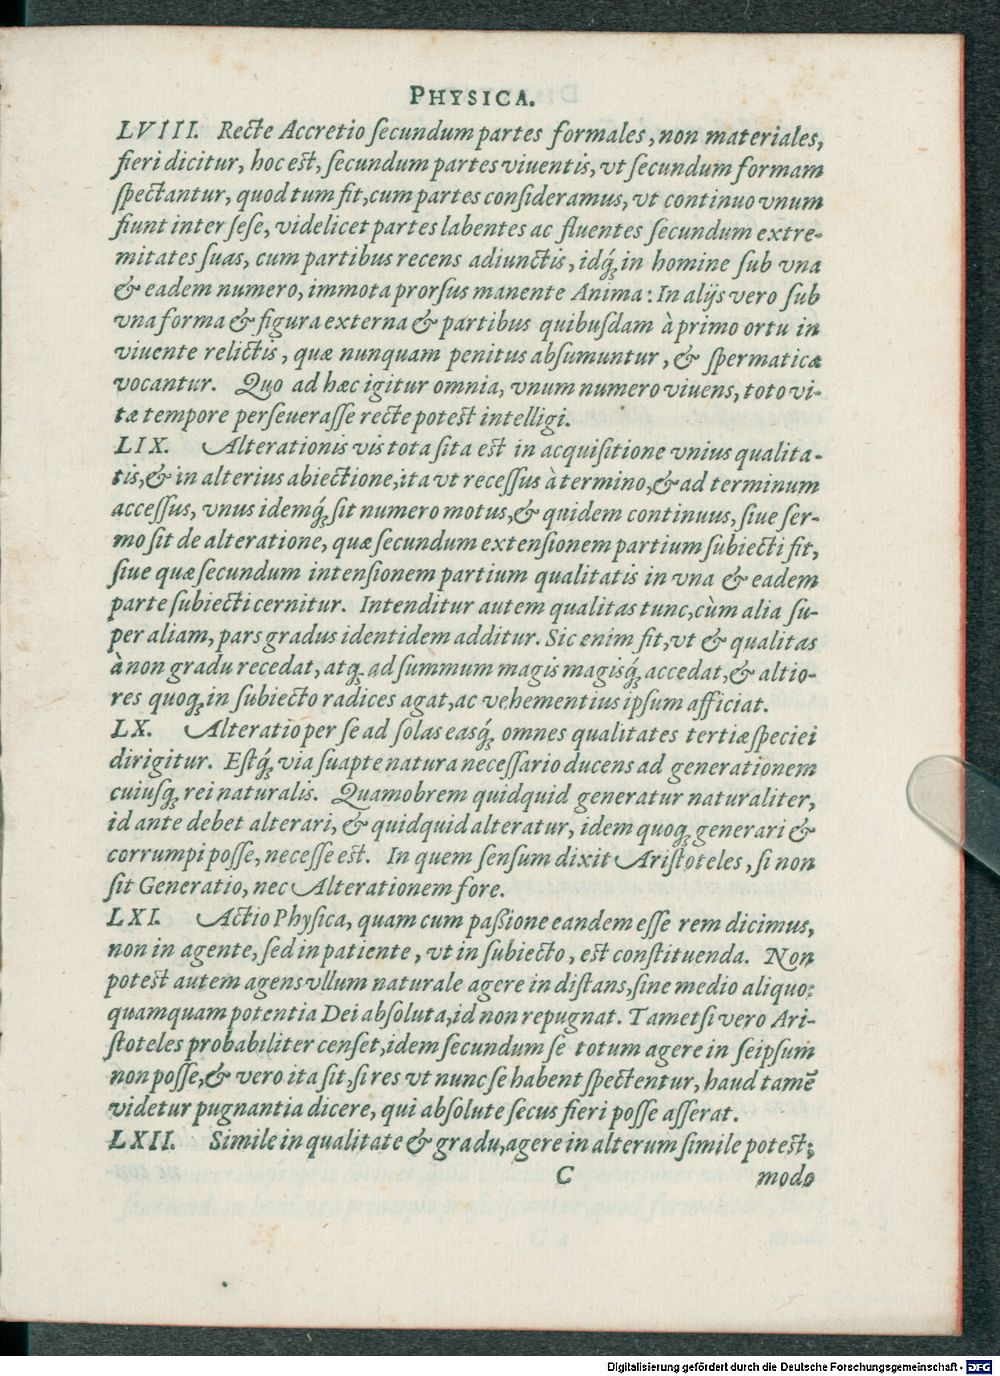 PHYSICA.
LVIII. Recte Accretio secundum partes formales, non materiales,
fieri dicitur, hoc est, secundum partes viuentis, vt secundum formam
spectantur, quod tum fit, cum partes consideramus, vt continuo vnum
fiunt inter sese, videlicet partes labentes ac fluentes secundum extre-
mitates suas, cum partibus recens adiunctis, idq́; in homine sub vna
& eadem numero, immota prorsus manente Anima: In alijs vero sub
vna forma & figura externa & partibus quibusdam à primo ortu in
viuente relictis, quæ nunquam penitus absumuntur, & spermaticæ
vocantur. Quo ad hæc igitur omnia, vnum numero viuens, toto vi-
tæ tempore perseuerasse recte potest intelligi.
LIX. Alterationis vis tota sita est in acquisitione vnius qualita-
tis, & in alterius abiectione, ita vt recessus à termino, & ad terminum
accessus, vnus idemq́; sit numero motus, & quidem continuus, siue ser-
mo sit de alteratione, quæ secundum extensionem partium subiecti fit,
siue quæ secundum intensionem partium qualitatis in vna & eadem
parte subiecti cernitur. Intenditur autem qualitas tunc, cùm alia su-
per aliam, pars gradus identidem additur. Sic enim fit, vt & qualitas
à non gradu recedat, atq; ad summum magis magisq́; accedat, & altio-
res quoq; in subiecto radices agat, ac vehementius ipsum afficiat.
LX. Alteratio per se ad solas easq́; omnes qualitates tertiæ speciei
dirigitur. Estq́; via suapte natura necessario ducens ad generationem
cuiusq; rei naturalis. Quamobrem quidquid generatur naturaliter,
id ante debet alterari, & quidquid alteratur, idem quoq; generari &
corrumpi posse, necesse est. In quem sensum dixit Aristoteles, si non
sit Generatio, nec Alterationem fore.
LXI. Actio Physica, quam cum paßione eandem esse rem dicimus,
non in agente, sed in patiente, vt in subiecto, est constituenda. Non
potest autem agens vllum naturale agere in distans, sine medio aliquo:
quamquam potentia Dei absoluta, id non repugnat. Tametsi vero Ari-
stoteles probabiliter censet, idem secundum se totum agere in seipsum
non posse, & vero ita sit, si res vt nunc se habent spectentur, haud tamē
videtur pugnantia dicere, qui absolute secus fieri posse asserat.
LXII. Simile in qualitate & gradu, agere in alterum simile potest;
C modo
Digitalisierung gefördert durch die Deutsche Forschungsgemeinschaft - DFG